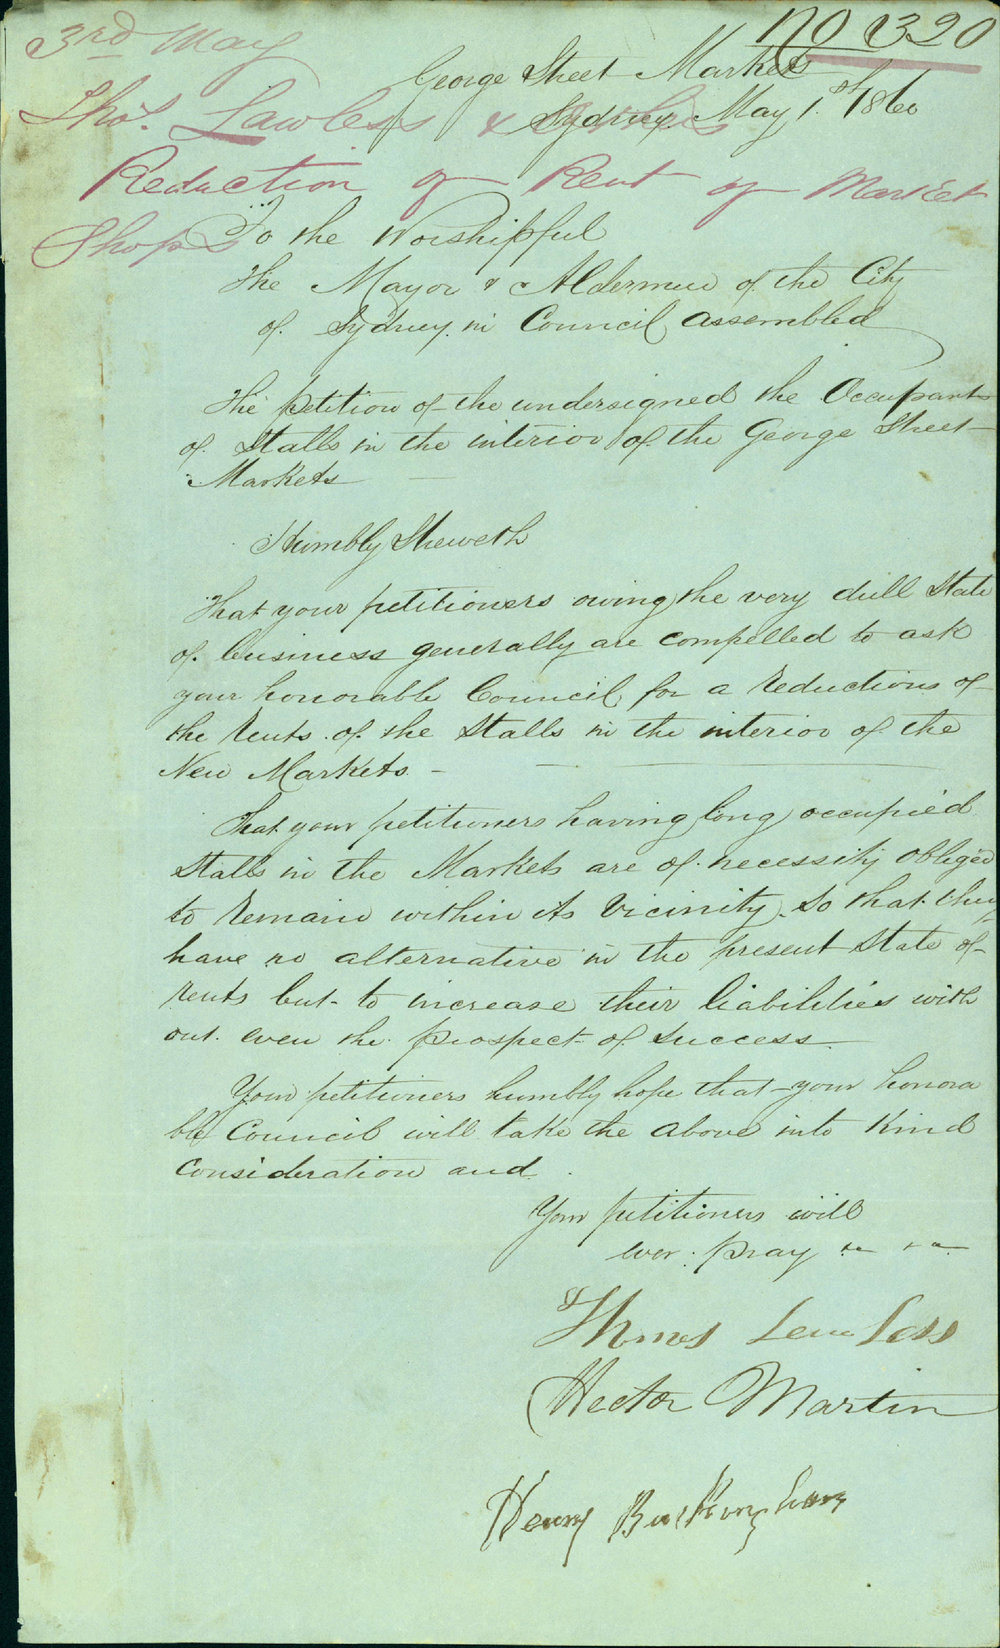 No 320
3rd May
George Street Markets
Sydney May 1st 1860
Thos. Lawless & others
Reduction of Rent of Market
Shops
To the Worshipful
The Mayor & Aldermen of the City
of Sydney in Council assembled
The petition of the undersigned the Occupants
of Stalls in the interior of the George Street
Markets
Humbly Sheweth
That your petitioners owing the very dull State
of business generally are compelled to ask
your honorable Council for a reductions of
the rents of the Stalls in the interior of the
New Markets. -
That your petitioners having long occupied
Stalls in the Markets are of necessity obliged
to remain within its vicinity. So that they
have no alternative in the present State of
rents but to increase their liabilities with
out even the prospect of success.
Your petitioners humbly hope that your honora
ble Council will take the above into kind
consideration and
Your petitioners will
ever pray &c &c
Thomas Lawless
Hector Martin
Henry Buckingham